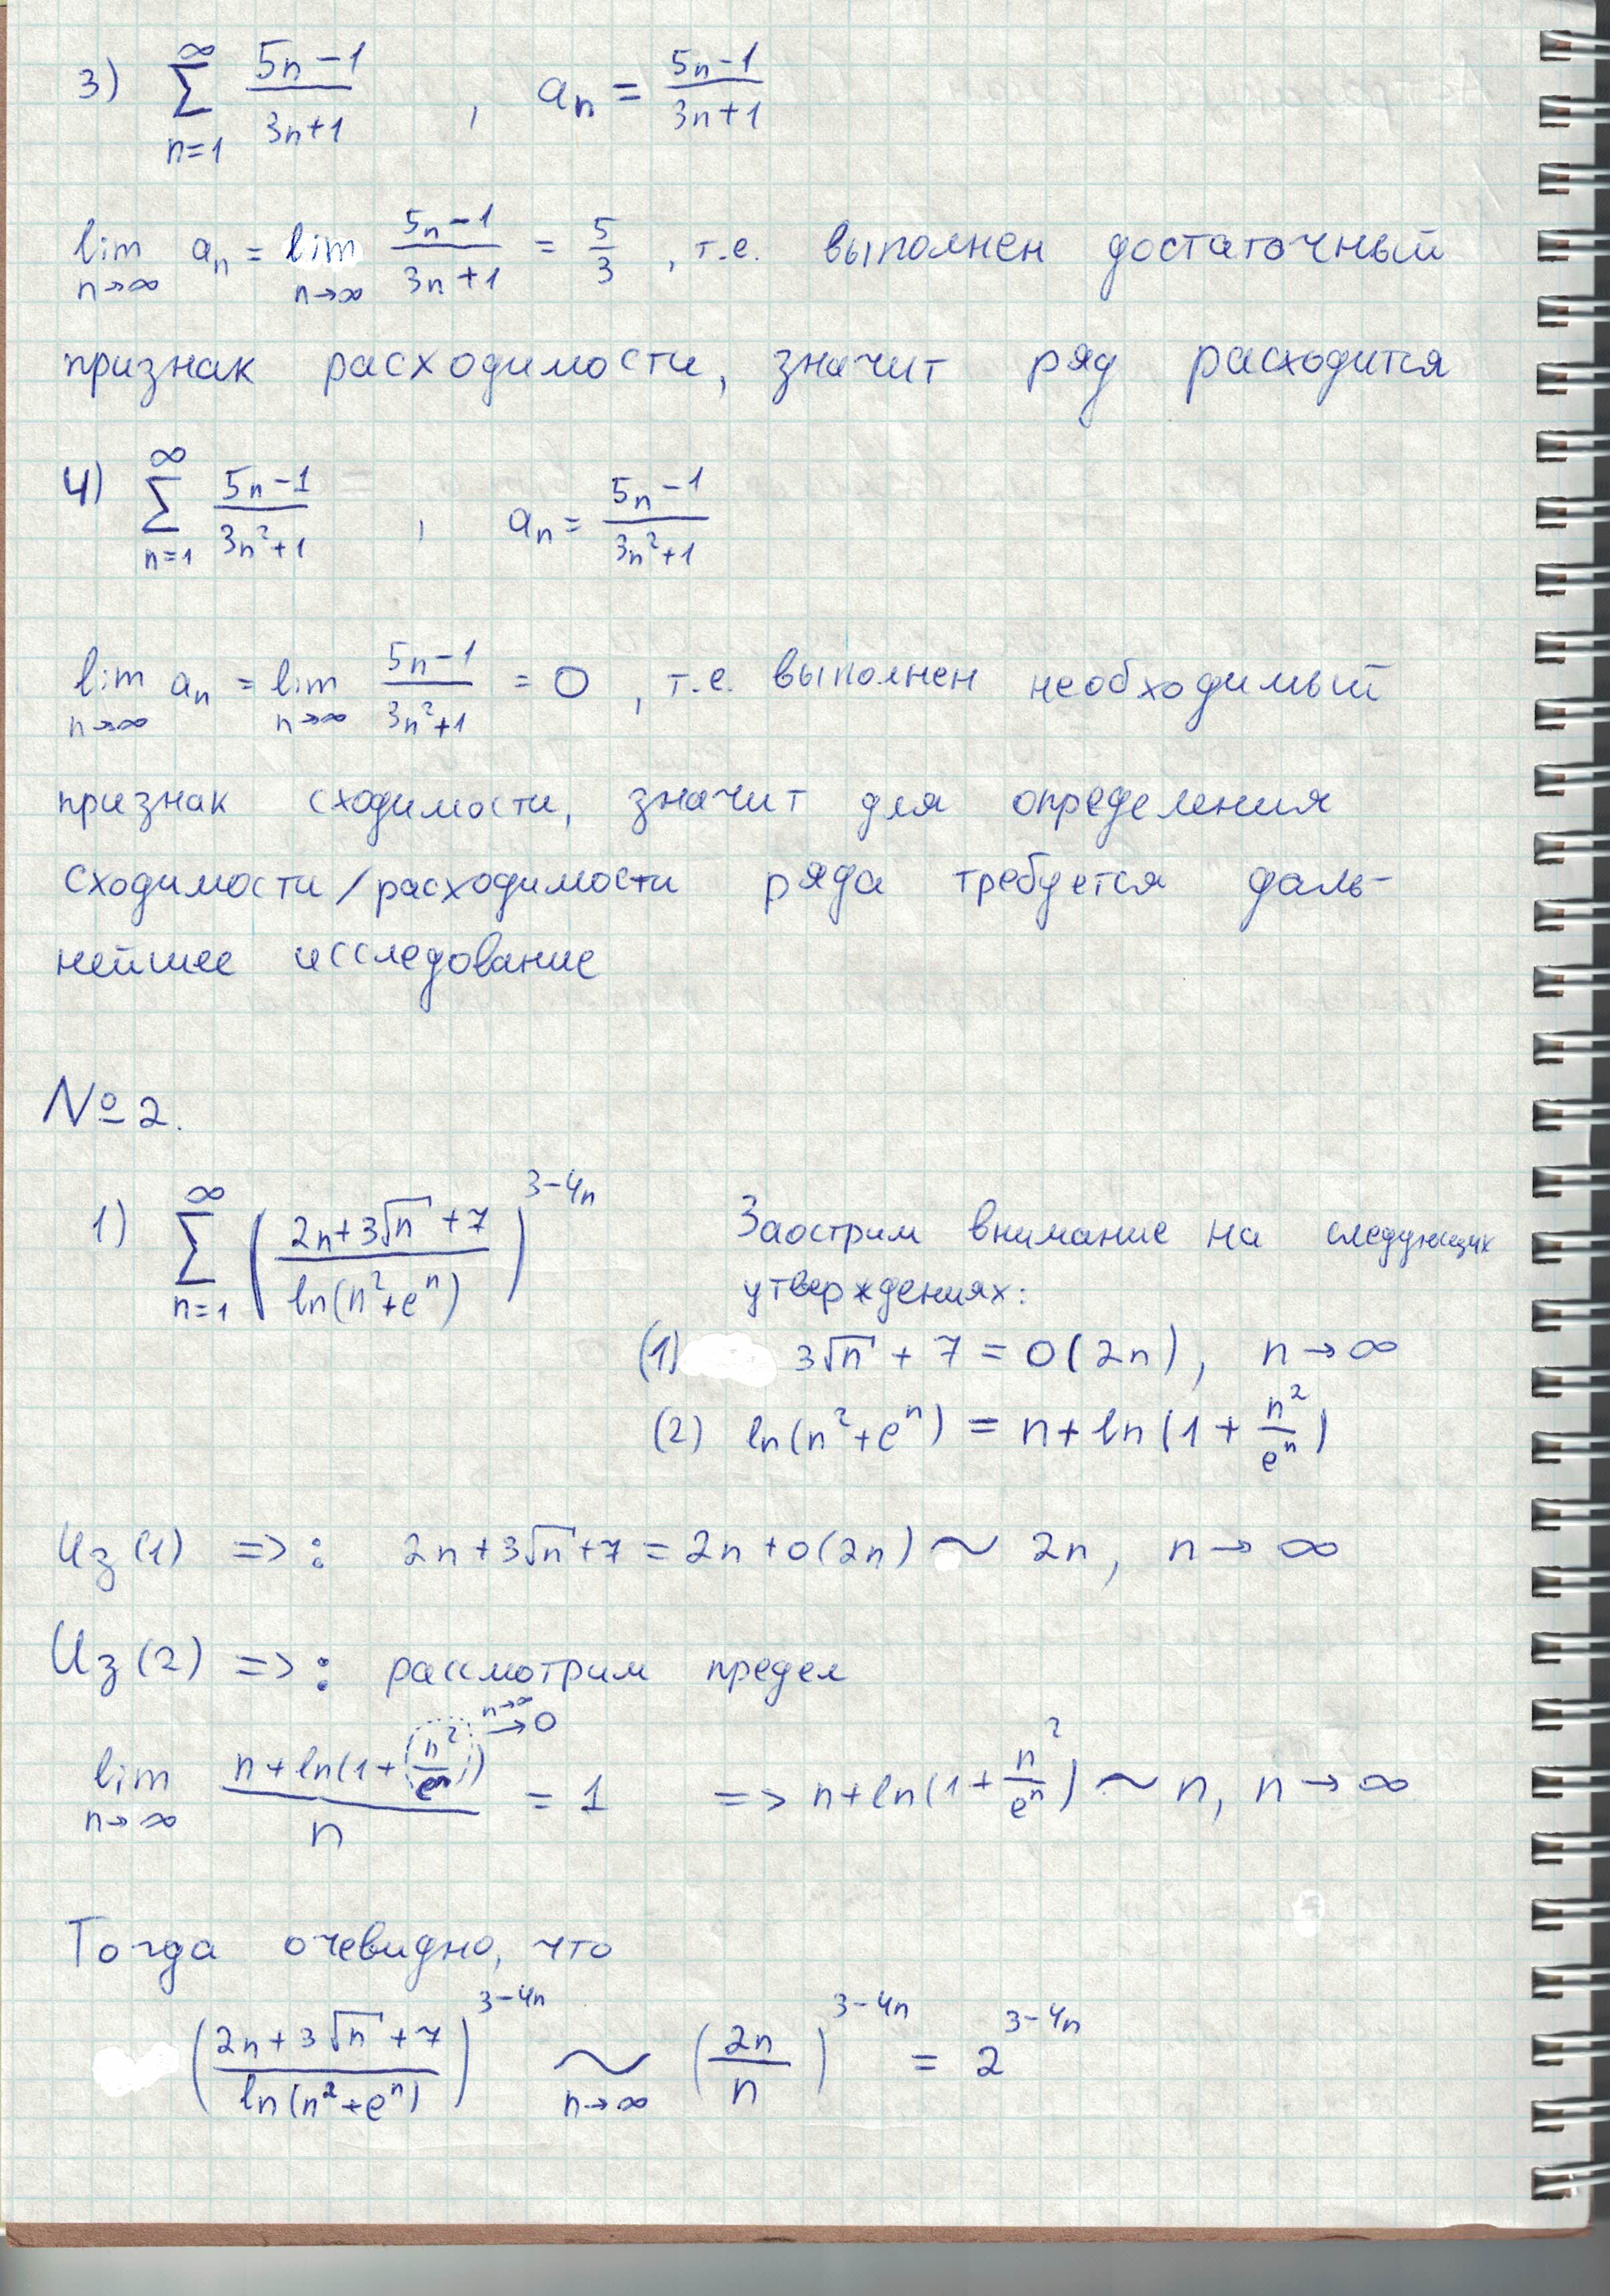 3) ∑_{n=1}^{∞} (5n-1)/(3n+1) , a_n = (5n-1)/(3n+1)
lim_{n→∞} a_n = lim_{n→∞} (5n-1)/(3n+1) = 5/3 , т.е. выполнен достаточный
признак расходимости, значит ряд расходится
4) ∑_{n=1}^{∞} (5n-1)/(3n²+1) , a_n = (5n-1)/(3n²+1)
lim_{n→∞} a_n = lim_{n→∞} (5n-1)/(3n²+1) = 0 , т.е. выполнен необходимый
признак сходимости, значит для определения
сходимости/расходимости ряда требуется даль-
нейшее исследование
№2.
1) ∑_{n=1}^{∞} ((2n+3√n+7)/ln(n²+e^n))^{3-4n} Заострим внимание на следующих
утверждениях:
(1) 3√n + 7 = o(2n), n→∞
(2) ln(n²+e^n) = n+ln(1+n²/e^n)
Из(1) =>: 2n+3√n+7 = 2n+o(2n) ~ 2n, n→∞
Из(2) =>: рассмотрим предел
lim_{n→∞} (n+ln(1+(n²/e^n)))/n = 1 n→∞ →0 => n+ln(1+n²/e^n) ~ n, n→∞
Тогда очевидно, что
((2n+3√n+7)/ln(n²+e^n))^{3-4n} ~_{n→∞} (2n/n)^{3-4n} = 2^{3-4n}